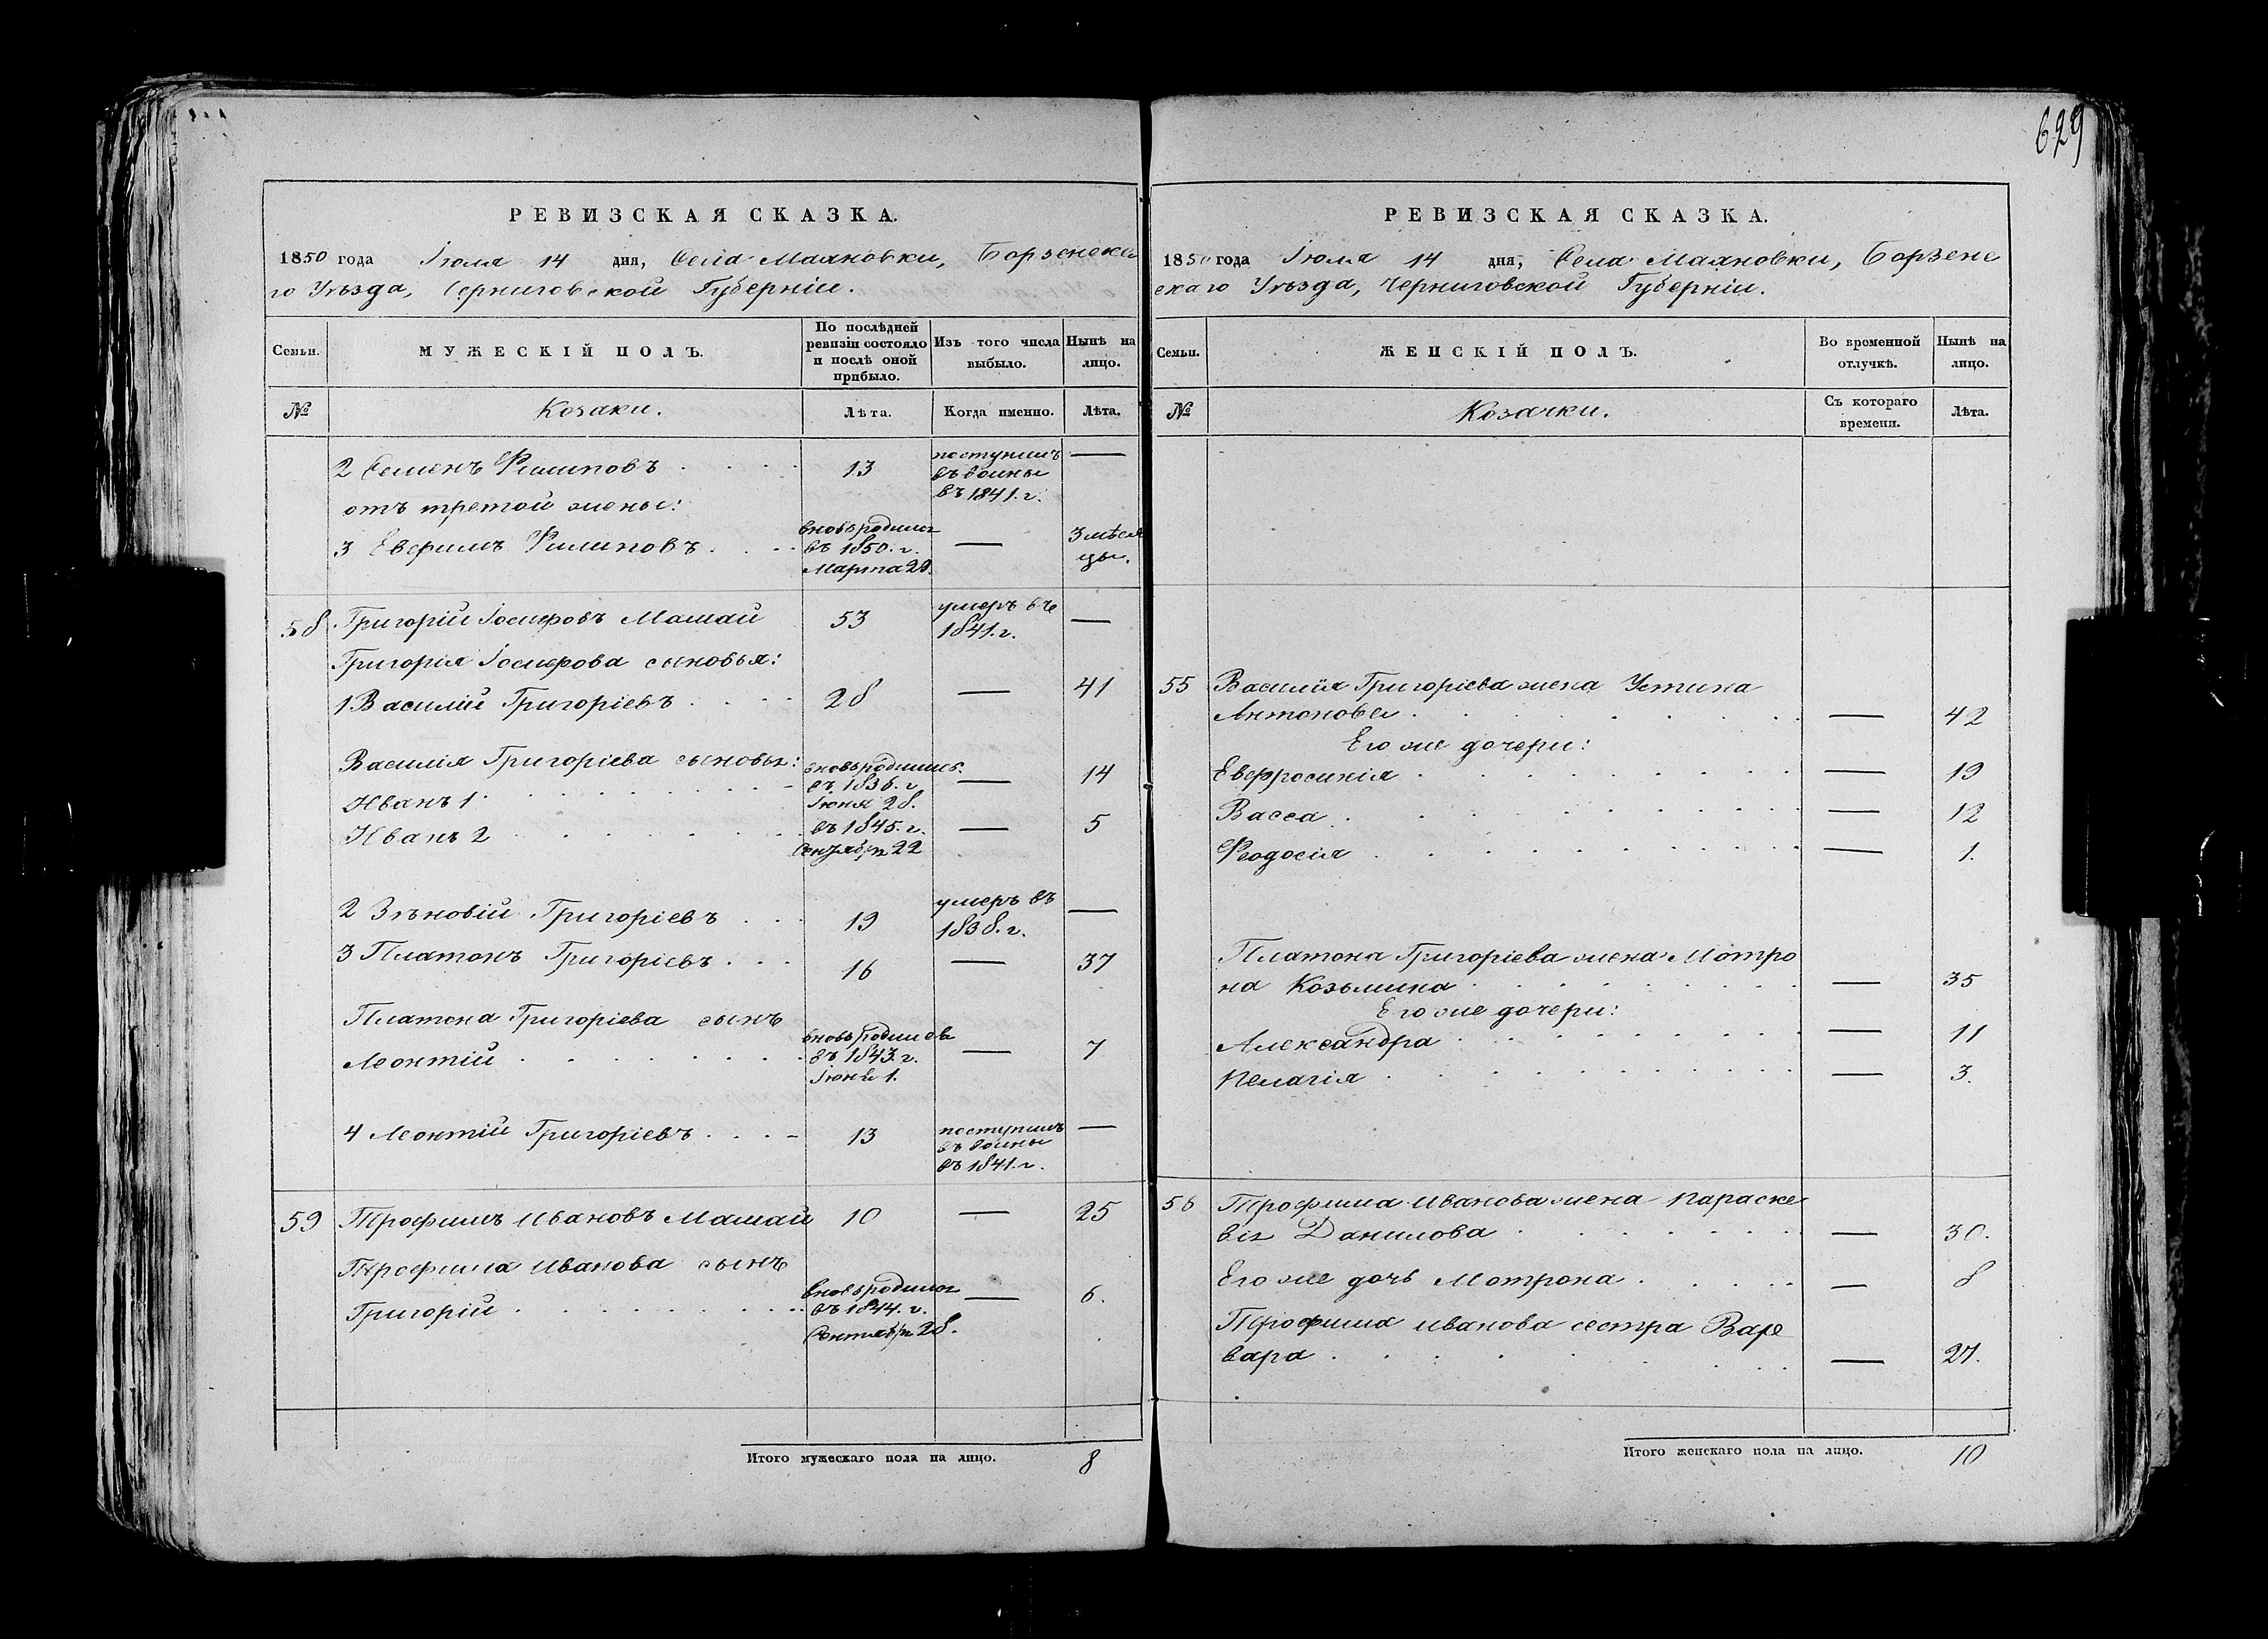 629
РЕВИЗСКАЯ СКАЗКА.
1850 года Іюля 14 дня, Села Маяновки, Борзенска
го Уѣзда, Черниговской Губерніи.
Семьи.
МУЖЕСКІЙ ПОЛЪ.
По послѣдней
ревизіи состояло
и послѣ оной
прибыло.
Изъ того числа
выбыло.
Нынѣ на
лицо.
№
Козаки.
Лѣта.
Когда именно.
Лѣта.
2 Семенъ Филиповъ 13 поступилъ
въ воины
въ 1841. г. —
отъ третой жены:
3 Филиповъ вновь родился
въ 1850. г.
Марта 29. — 3 мѣся
цы.
58 Григорій Іосифовъ Машай 53 умеръ въ
1841. г. —
Григорія Іосифова сыновья:
1 Василій Григоріевъ 28 — 41
Василія Григоріева сыновья:
Иванъ 1 вновь родились.
въ 1836. г.
Іюня 28. — 14
Иванъ 2 въ 1845. г.
Сентября 22 — 5
2 Зѣновій Григоріевъ 19 умеръ въ
1838. г. —
3 Платонъ Григоріевъ 16 — 37
Платона Григоріева сынъ
Леонтій вновь родился
въ 1843. г.
Іюня 1. — 7
4 Леонтій Григоріевъ 13 поступилъ
въ воины
въ 1841. г. —
59 Трофимъ Ивановъ Машай 10 — 25
Трофима Иванова сынъ
Григорій вновь родился
въ 1844. г.
Сентября 28. — 6.
Итого мужескаго пола на лицо. 8
РЕВИЗСКАЯ СКАЗКА.
1850 года Іюля 14 дня, Села Маяновки, Борзен
скаго Уѣзда, Черниговской Губерніи.
Семьи.
ЖЕНСКІЙ ПОЛЪ.
Во временной
отлучкѣ.
Нынѣ на
лицо.
№
Козачки.
Съ котораго
времени.
Лѣта.
55 Василія Григоріева жена Устина
Антонова — 42
Его же дочери:
Евфросинія — 19
Васса — 12
Феодосія — 1.
Платона Григоріева жена Мотро
на Козьмина — 35
Его же дочери:
Александра — 11
Пелагія — 3.
56 Трофима Иванова жена Параске
вія Данилова — 30.
Его же дочь Мотрона — 8
Трофима Иванова сестра Вар
вара — 27.
Итого женскаго пола на лицо. 10